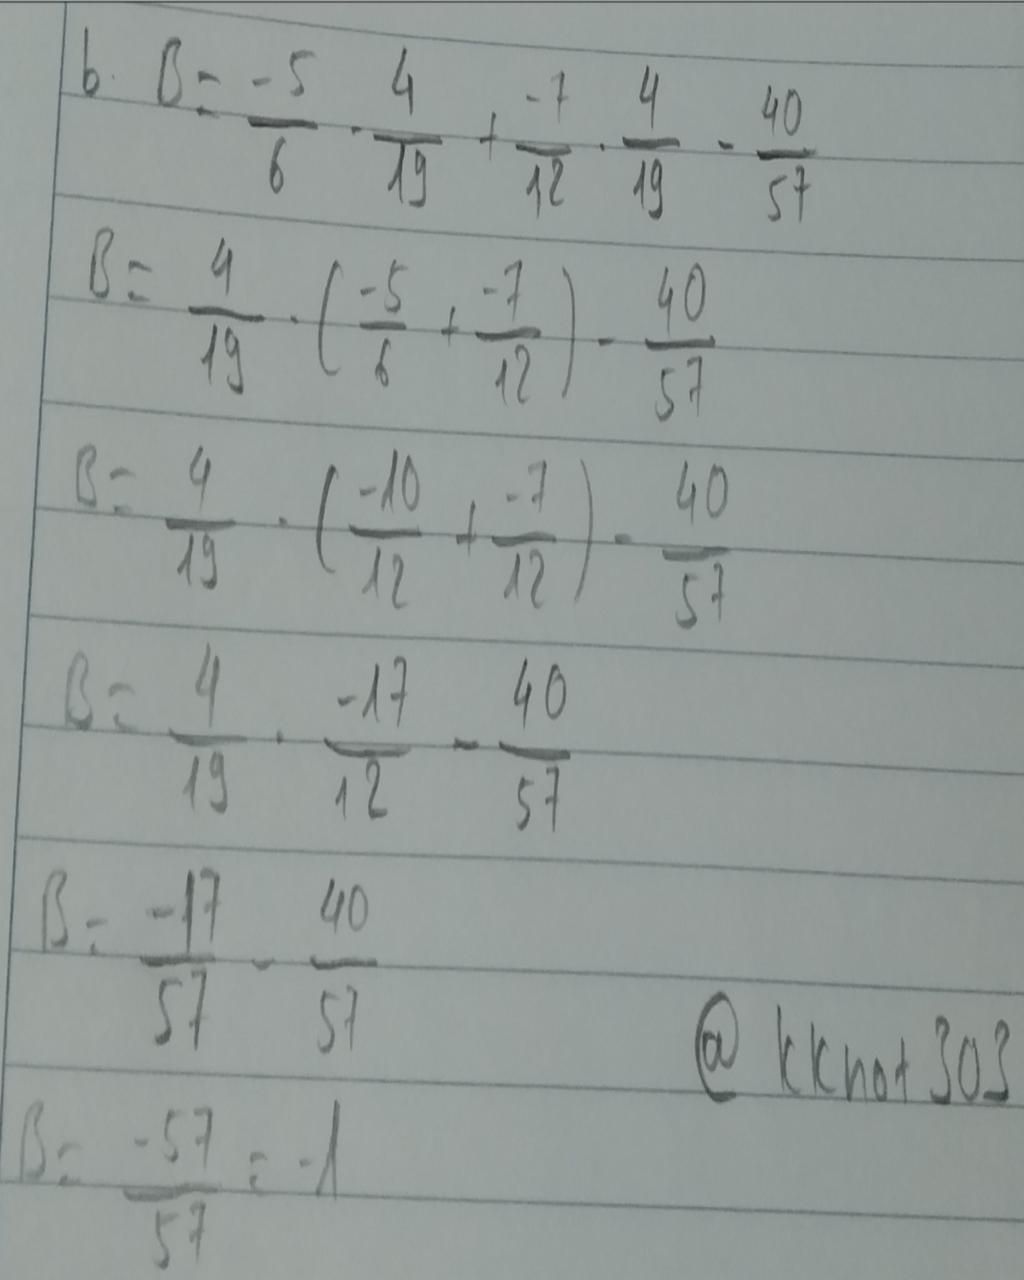 b. B = -5/6 . 4/19 + -7/12 . 4/19 - 40/57
B = 4/19 . (-5/6 + -7/12) - 40/57
B = 4/19 . (-10/12 + -7/12) - 40/57
B = 4/19 . -17/12 - 40/57
B = -17/57 - 40/57
@kknot303
B = -57/57 = -1